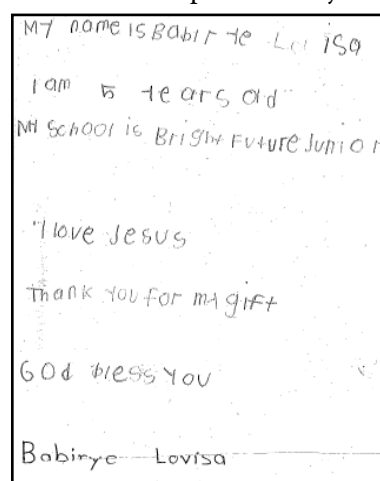 My name is Babirye Lovisa
I am 5 years old
My School is Bright Future Junior
I love Jesus
Thank you for my gift
God bless you
Babirye Lovisa